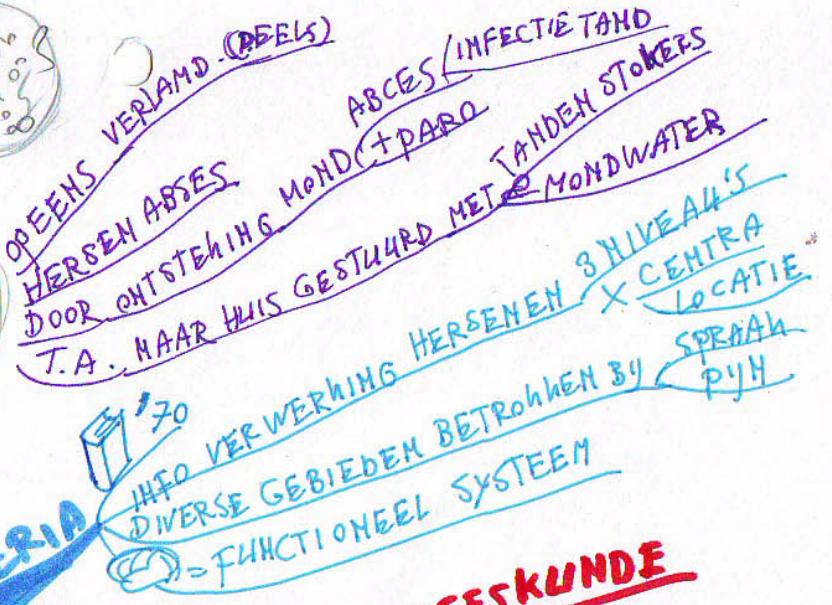 OPEENS VERLAMD. (DEELS)
HERSEN ABSES
DOOR ONTSTEKING MOND
ABCES / INFECTIE TAND
+ PARO
T.A. NAAR HUIS GESTUURD MET
TANDEN STOKERS
MONDWATER
'70
INFO VERWERKING HERSENEN
3 NIVEAU'S
X CENTRA
LOCATIE
DIVERSE GEBIEDEN BETROKKEN BY
SPRAAK
PYN
= FUNCTIONEEL SYSTEEM